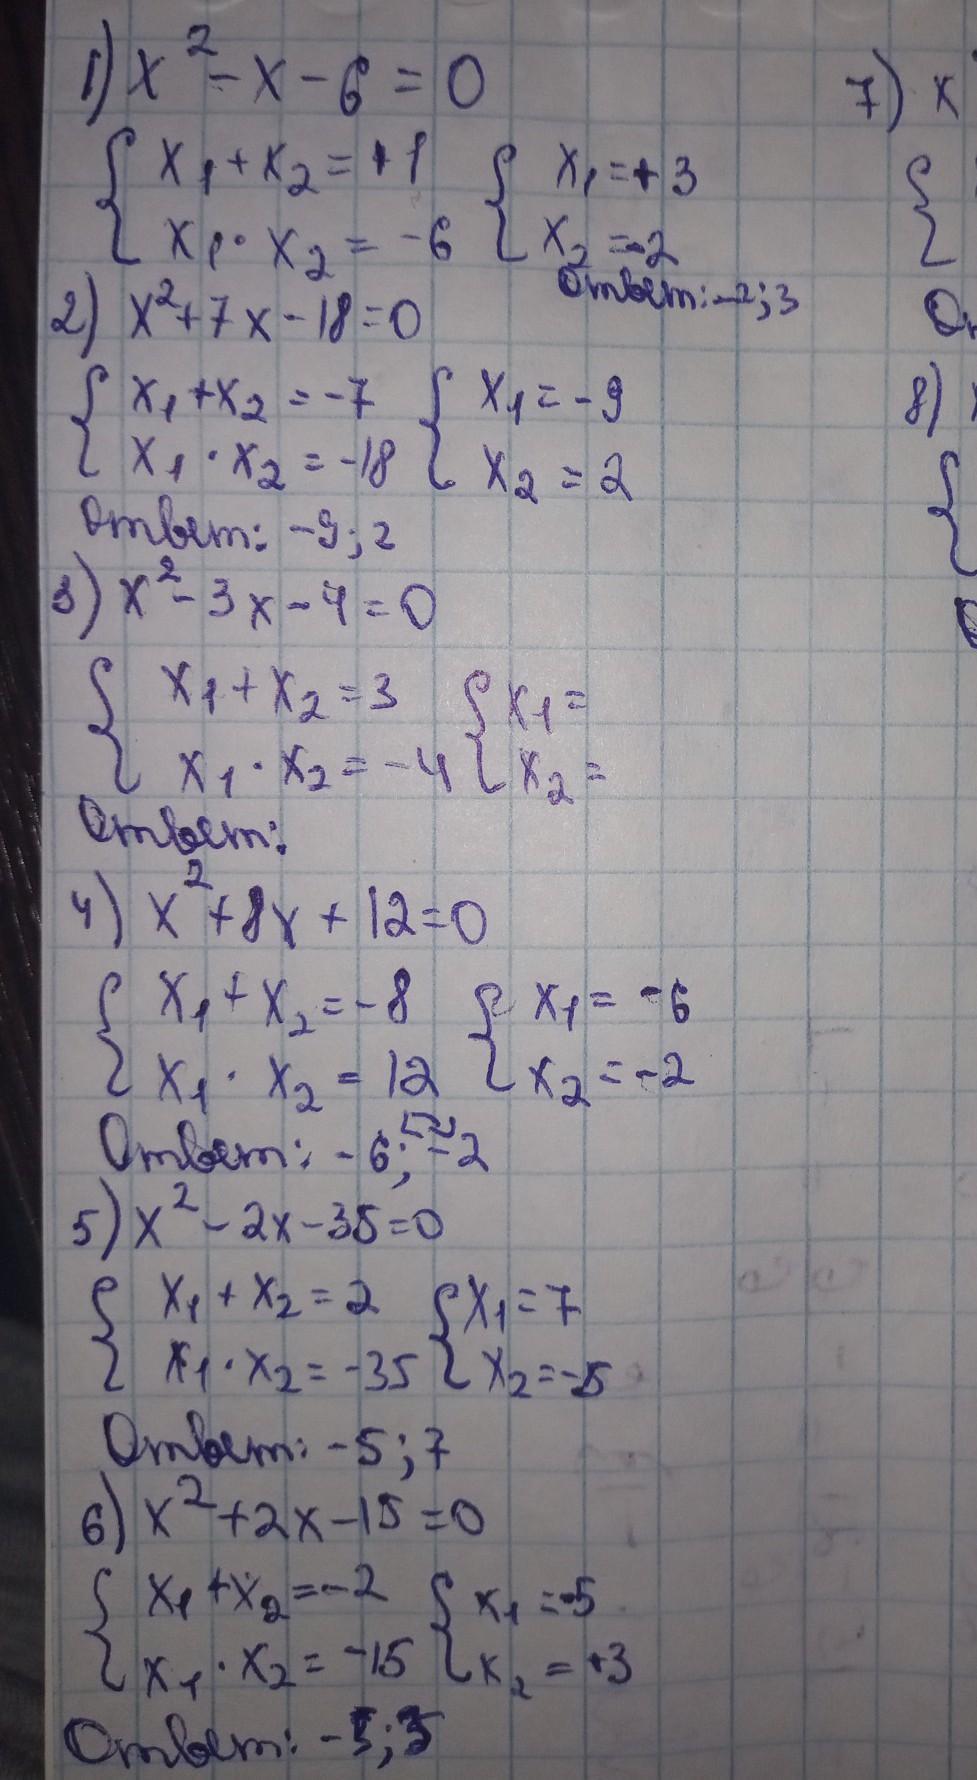 1) x² - x - 6 = 0
{ x₁ + x₂ = +1 { x₁ = +3
x₁ · x₂ = -6 x₂ = -2
Ответ: -2; 3
2) x² + 7x - 18 = 0
{ x₁ + x₂ = -7 { x₁ = -9
x₁ · x₂ = -18 x₂ = 2
Ответ: -9; 2
3) x² - 3x - 4 = 0
{ x₁ + x₂ = 3 { x₁ =
x₁ · x₂ = -4 x₂ =
Ответ:
4) x² + 8x + 12 = 0
{ x₁ + x₂ = -8 { x₁ = -6
x₁ · x₂ = 12 x₂ = -2
Ответ: -6; -2
5) x² - 2x - 35 = 0
{ x₁ + x₂ = 2 { x₁ = 7
x₁ · x₂ = -35 x₂ = -5
Ответ: -5; 7
6) x² + 2x - 15 = 0
{ x₁ + x₂ = -2 { x₁ = -5
x₁ · x₂ = -15 x₂ = +3
Ответ: -5; 3
7) x
{
8)
{